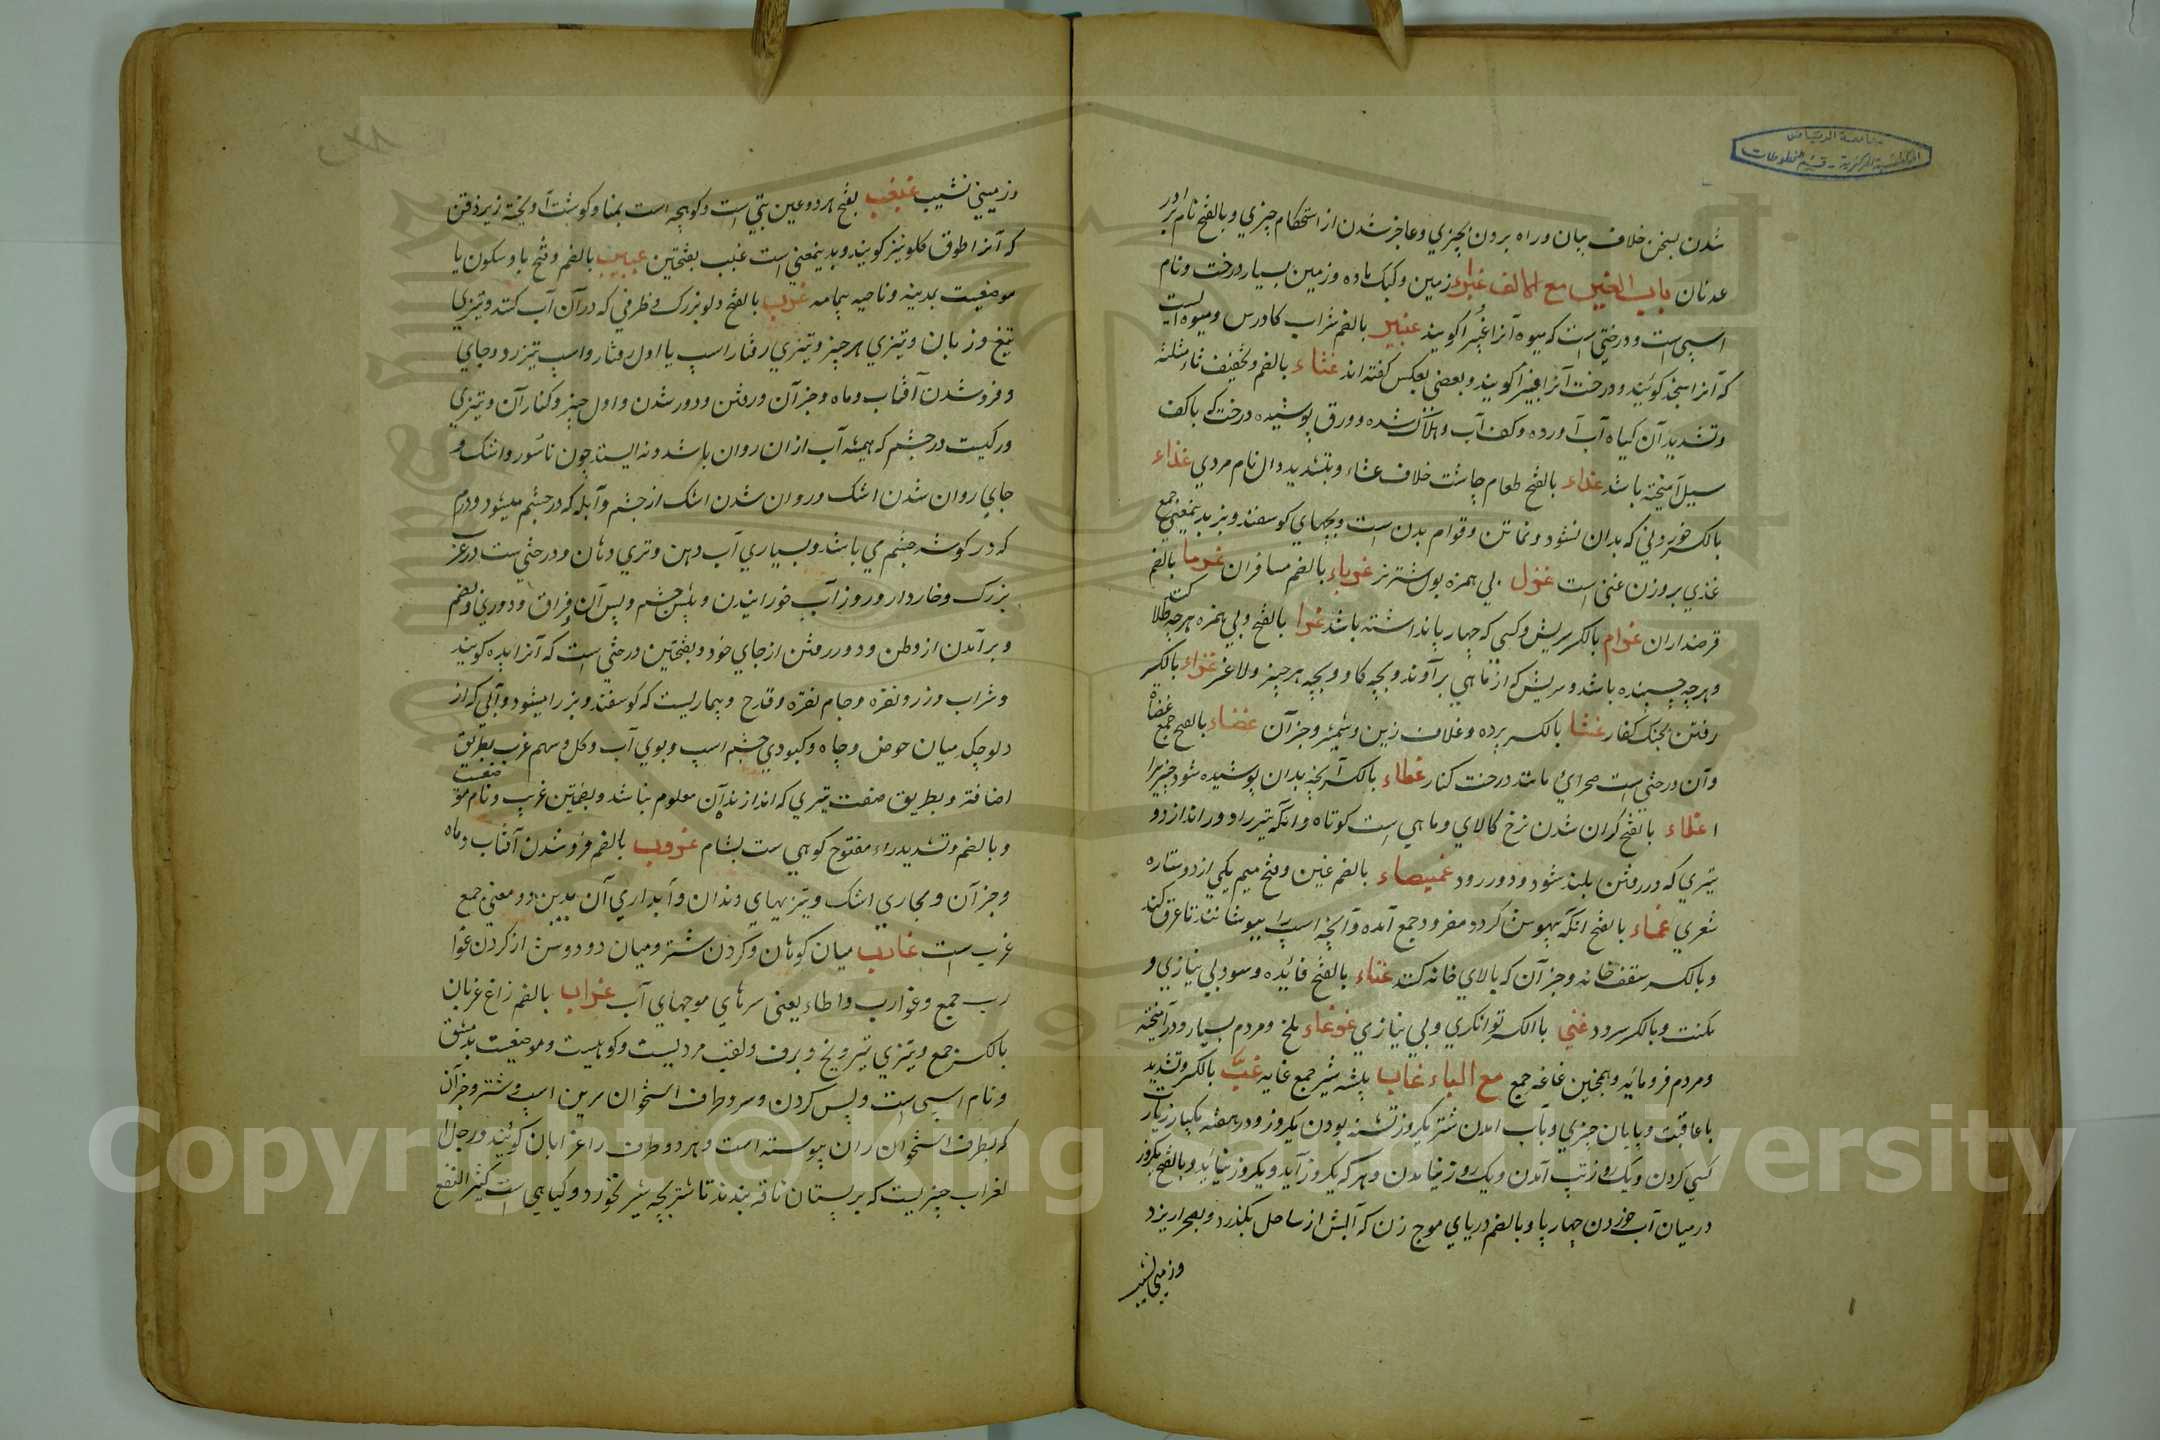 جامعة الرياض
المكتبة المركزية - قسم المخطوطات
شدن بسخن خلاف بيان وراه بردن بچيزي وعاجز شدن از استحكام چيزي وبالفتح نام برادر
عدنان باب الغين مع الالف غبراء زمين وكبك ماده وزمين بسيار درخت ونام
اسپي است ودرختي است كه ميوه آنرا غبيرا كويند غبير بالضم شراب كاورس وميوه ايست
كه آنرا سنجد كويند ودرخت آنرا غبيرا كويند وبعضي بعكس كفته اند غثاء بالضم وتخفيف ثاء مثلثه
وتشديد آن كياه آب آورده وكف آب وهلاك شده وورق پوشيده درخت كه باكف
سيل آميخته باشد غداء بالفتح طعام چاشت خلاف عشاء وبتشديد دال نام مردي غذاء
بالكسر خوردني كه بدان نشو ونما تن وقوام بدن است وبچهاي كوسفند وبز بدينمعني جمع
غذي بروزن غني است غذل بي همزه بول شتر نر غرباء بالضم مسافران غرما بالضم
قرضداران غرام بالكسر سريش وكسي كه چهارپا نداشته باشد غرا بالفتح وبي همزه هرچه طلا كنند
وهرچه چسپنده باشد وسريش كه از ماهي برآوند وبچه كاو وبچه هر چيز ولاغر غزاء بالكسر
رفتن بجنك كفار غشا بالكسر پرده وغلاف زين وشمشير وجز آن غضاء بالفتح جمع غضاة
وآن درختي است صحرائي مانند درخت كنار غطاء بالكسر آنچه بدان پوشيده شود چيزيرا
ا غلاء بالفتح كران شدن نرخ كالاي وماهي است كوتاه وانكه تير را دور اندازد و
تيري كه در رفتن بلند شود ودور رود غميصاء بالضم غين وفتح ميم يكي از دو ستاره
شعري غماء بالفتح انكه بيهوش كردد مفرد وجمع آمده وآنچه اسپ را بپوشانند تا عرق كند
وبالكسر سقف خانه وجز آن كه بالاي خانه كنند غناء بالفتح فائيده وسود بي نيازي و
مكنت وبالكسر سرود غني باالكسر توانكري وبي نيازي غوغاء ملخ ومردم بسيار ودرآميخته
ومردم فرومائيه وهمچنين غاغه جمع مع الباء غاب بيشه شير جمع غابه غبّ بالكسر وتشديد
با عاقبت وپايان چيزي وبآب امدن شتر يكروز تشنه بودن يكروز ودر هفته يكبار زيارت
كسي كردن ويك روز تب آمدن ويك روز نيامدن وهر كه يكروز آيد ويكروز نيايد وبالفتح يكروز
درميان آب خوردن چهارپا وبالضم درياي موج زن كه آبش از ساحل بكذرد وبصحرا ريزد
وزميني نشيب
وزميني نشيب غبغب بفتح هر دو غين بتي است وكوهچه است بمنا وكوشت آويخته زير ذقن
كه آنرا طوق كلو نيز كويند وبدينمعني است غبب بفتحتين غبيب بالضم وفتح با وسكون يا
موضعيست بمدينه وناحيه بيمامه غرب بالفتح دلو بزرك وظرفي كه در آن آب كنند وتيزي
تيغ وزبان وتيزي هر چيز وتيزي رفتار اسپ يا اول رفتار واسپ تيز رو وجاي
وفرو شدن آفتاب وماه وجز آن ورفتن ودور شدن واول چيز وكنار آن وتيزي
وركيست در چشم كه هميشه آب از ان روان باشد ونه ايستد چون ناسور واشك و
جاي روان شدن اشك وروان شدن اشك از چشم وآبله كه در چشم ميشود وورم
كه در كوشه چشم مي باشد وبسياري آب دهن وتري دهان ودرختي ست در عز
بزرك وخاردار وروز آب خورانيدن وپيش چشم وپس آن وفراق ودوري وبضم
وبرآمدن از وطن ودور رفتن از جاي خود وبفتحتين درختي است كه آنرا پده كويند
وشراب وزر ونقره وجام نقره وقدح وبيماريست كه كوسفند وبز را ميشود وآبي كه از
دلو چكد ميان حوض وچاه وكبودي چشم اسپ وبوي آب وكل وسهم غرب بطريق
اضافة وبطريق صفت تيري كه اندازندۀ آن معلوم نباشد وبضمتين غريب ونام موضعيست
وبالضم وتشديد راء مفتوح كوهي ست بشام غروب بالضم فرو شدن آفتاب وماه
وجز آن ومجاري اشك وتيزيهاي دندان وآبداري آن بدين دو معني جمع
غرب است غارب ميان كوهان وكردن شتر وميان دو دوش از كردن غوا
رب جمع وغوارب واطاء يعني سرهاي موجهاي آب غراب بالضم زاغ غربان
بالكسر جمع وتيزي تير ويخ وبرف ولقب مرديست وكوهيست وموضعيست بدمشق
ونام اسپي است وپس كردن وسر وطرف استخوان سرين اسپ وشتر وجز آن
كه بطرف استخوان ران پيوسته است وهر دو طرف را غرابان كويند ورجل ا
لغراب چيزيست كه بر پستان ناقه بندند تا شتر بچه شير نخورد وكياهي است كثير النفع
Copyright © King Saud University